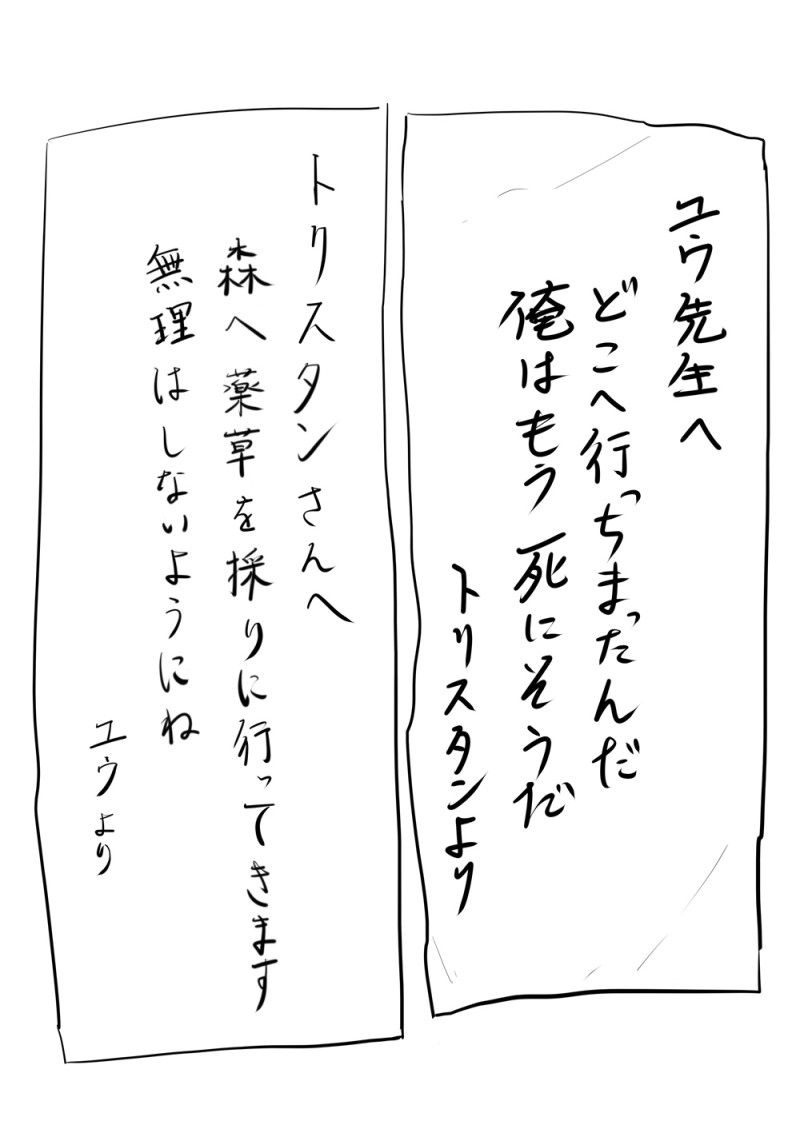 ユウ先生へ
どこへ行っちまったんだ
俺はもう死にそうだ
トリスタンより
トリスタンさんへ
森へ薬草を採りに行ってきます
無理はしないようにね
ユウより